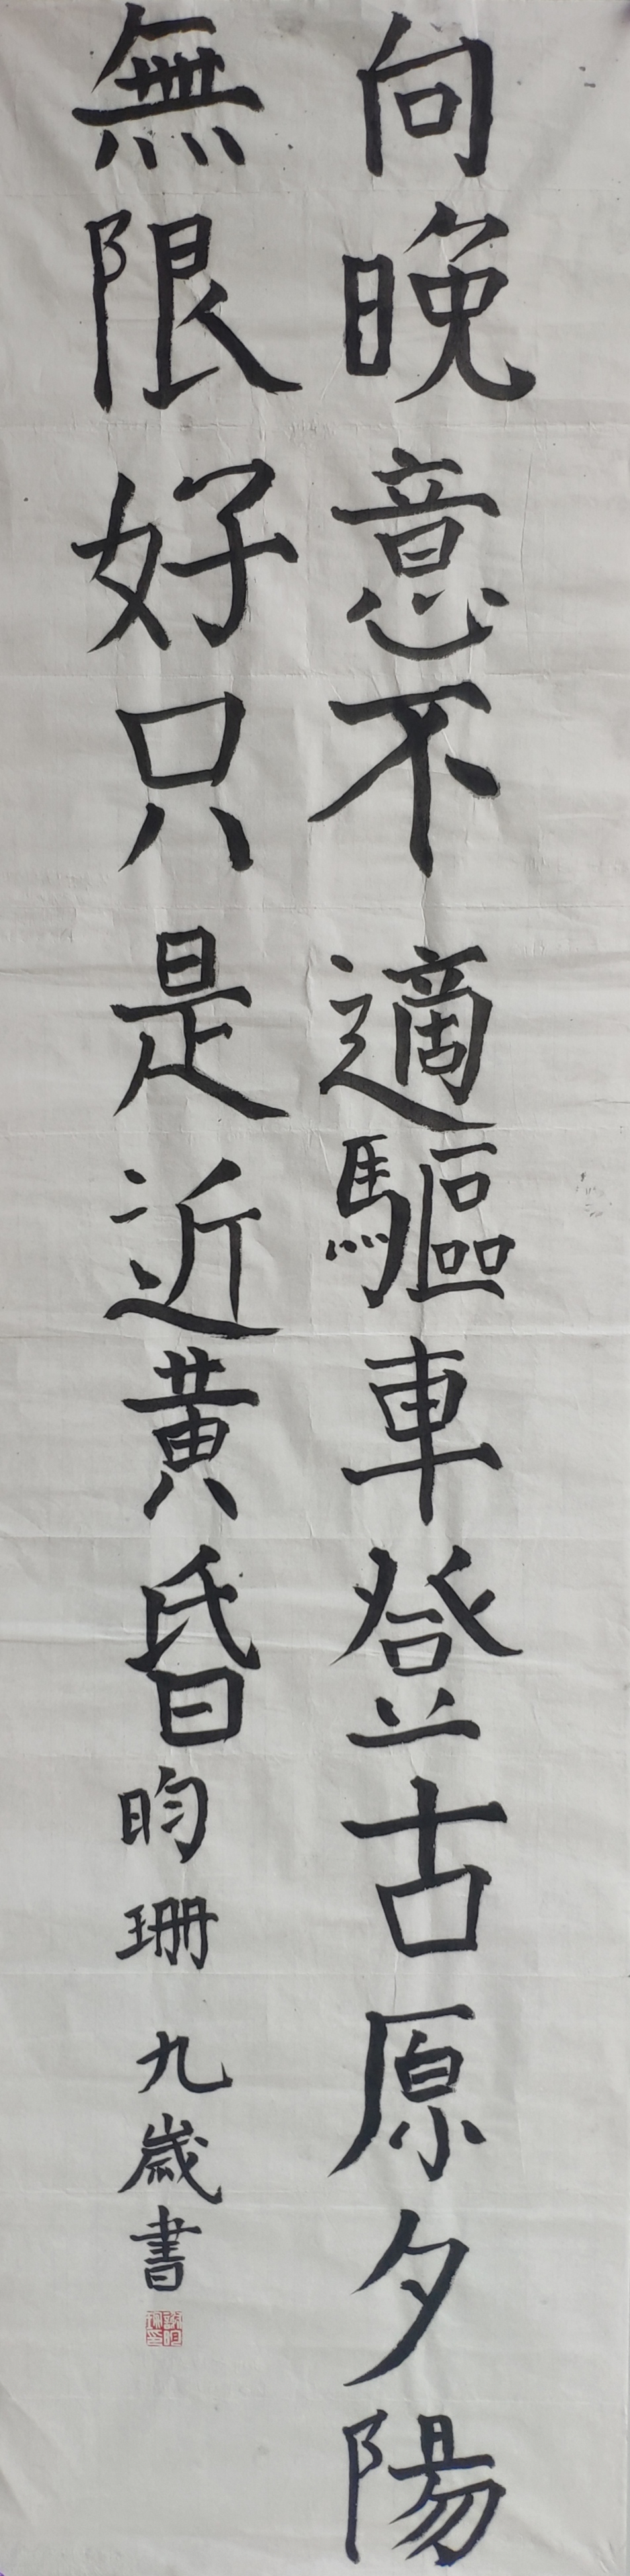 向晚意不適驅車登古原夕陽
無限好只是近黄昏昀珊 九歲書